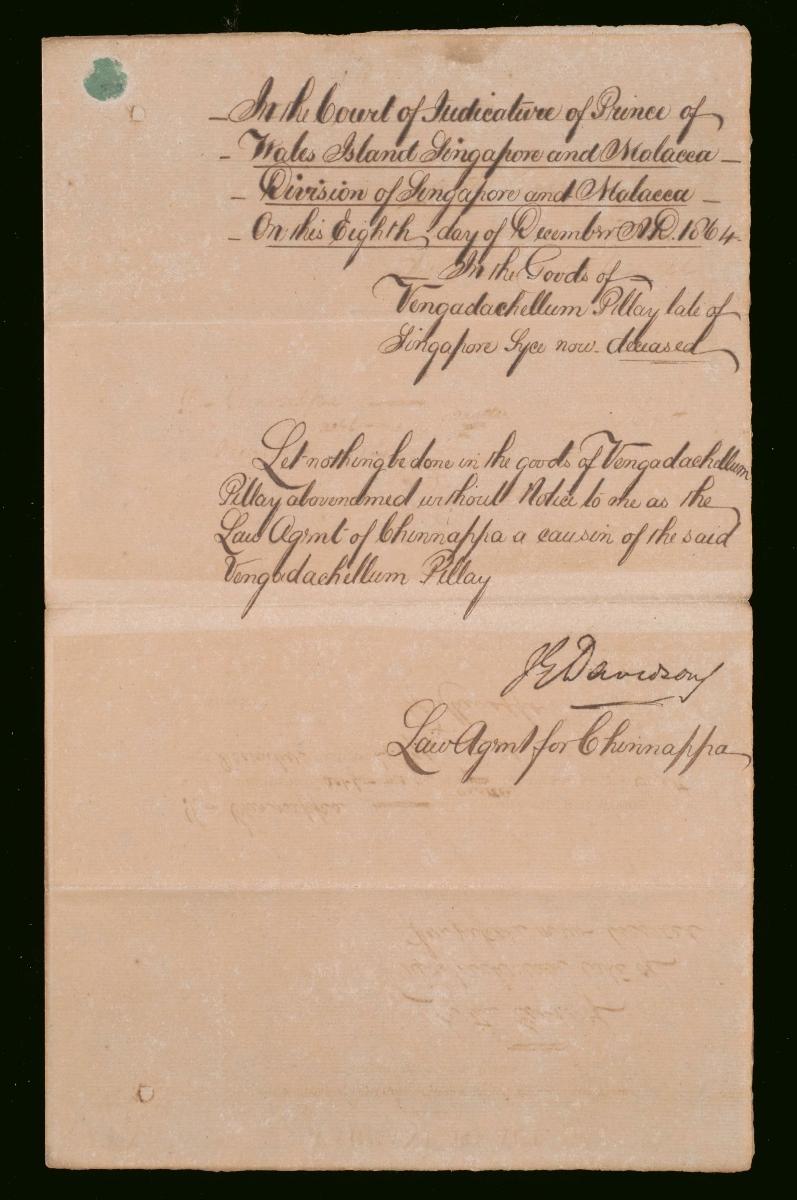 In the Court of Judicature of Prince of
Wales Island Singapore and Malacca
Division of Singapore and Malacca
On this Eighth day of December A.D. 1864
In the Goods of
Vengadachellum Pillay late of
Singapore Syce now deceased
Let nothing be done in the goods of Vengadachellum
Pillay abovenamed without Notice to me as the
Law Agent of Chinnappa a causin of the said
Vengadachellum Pillay
J G Davidson
Law Agent for Chinnappa